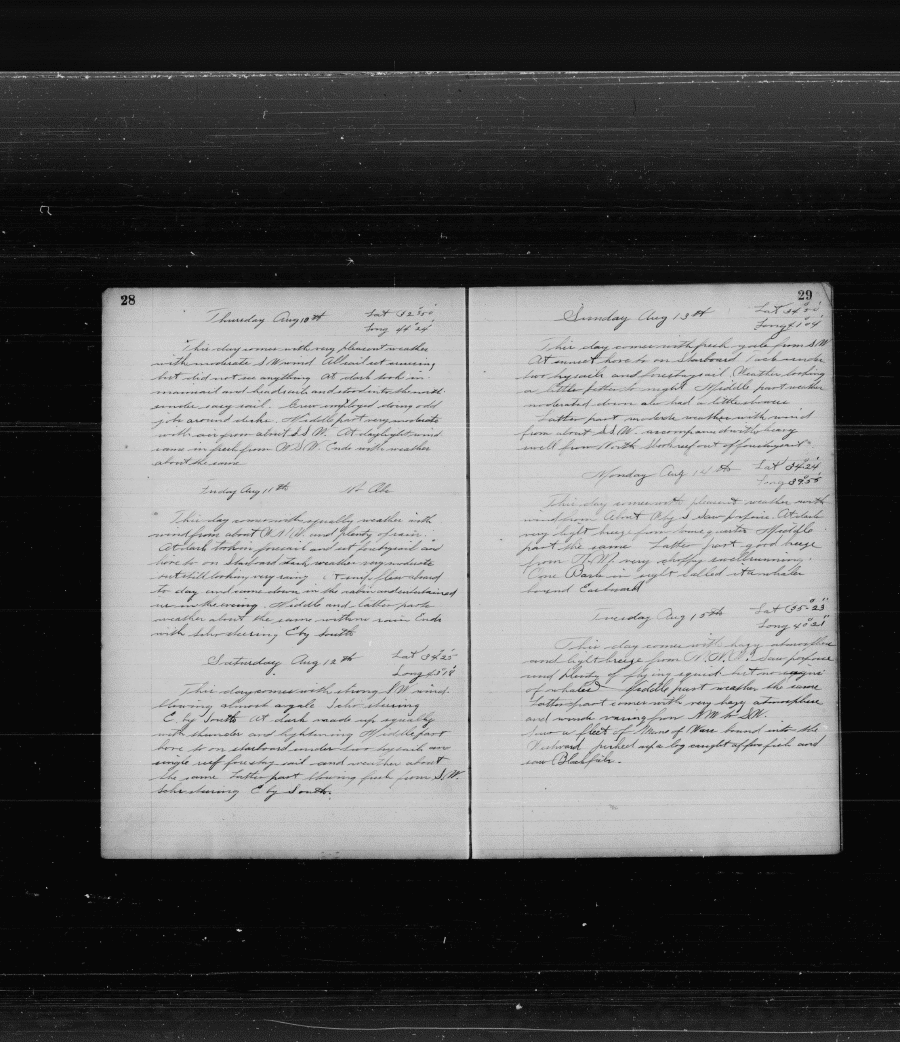 28
Thursday Aug 10th Lat 32°50'
Long 44°24'
This day comes with very pleasant weather
with moderate S W wind All sail set cruising
but did not see anything At dark took in
mainsail and headsails and stood into the north
under easy sail. Crew employed doing odd
jobs around decks. Middle part very moderate
with air from about S S W. At daylight wind
came in fresh from W S W. Ends with weather
about the same
Friday Aug 11th No Obs
This day comes with squally weather with
wind from about and plenty of rain.
At dark took in foresail and set forstaysail and
hove to on starboard tack weather very moderate
but still looking very rainy on board
to day and came down in the cabin and entertained
me in the evening. Middle and latter parts
weather about the same with no rain Ends
with Schr steering E by South
Saturday Aug 12th Lat 34°25'
Long 43°18'
This day comes with strong wind
blowing almost a gale Schr steering
E. by South At dark made up squally
with thunder and lightning Middle part
hove to on starboard under two trysails and
single reef forestay sail and weather about
the same Latter part blowing fresh from S.W.
Schr steering E by South.
29
Sunday Aug 13th Lat 34°
Long 41°04'
This day comes with fresh gale from S W
At sunset hove to on Starboard Tack under
two trysails and forestaysail Weather looking
a little better to night Middle part weather
moderated down also had a little shower
Latter part moderate weather with wind
from about S S W accompanied with heavy
swell from North Shook reef out of
Monday Aug 14th Lat 34°24'
Long 39°55'
This day comes with pleasant weather with
wind from About by S Saw porpoise. At dark
very light breeze from same quarter Middle
part the same Latter part good breeze
from very choppy swell running.
One Bark in sight called it a whaler
bound Eastward
Tuesday Aug 15th Lat 35-23
Long 40°21'
This day comes with hazy atmosphere
and light breeze from Saw porpoise
and plenty of flying squid but no signs
of whales Middle part weather the same
Latter part comes with very hazy atmosphere
and winds varing from NW to SW.
Saw a fleet of Mane of Ware bound into the
Westward picked up a log caught a few fish and
saw Blackfish.